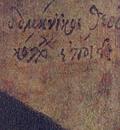 δομήνικος θεο
ἐποίει